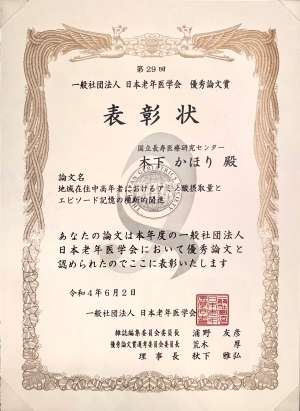 第29回
一般社団法人 日本老年医学会 優秀論文賞
表彰状
国立長寿医療研究センター
木下 かほり 殿
論文名
地域在住中高年者におけるアミノ酸摂取量と
エピソード記憶の横断的関連
あなたの論文は本年度の一般社団法人
日本老年医学会において優秀論文と
認められたのでここに表彰いたします
令和4年6月2日
一般社団法人 日本老年医学会
雑誌編集委員会委員長 浦野 友彦
優秀論文賞選考委員会委員長 荒木 厚
理事長 秋下 雅弘